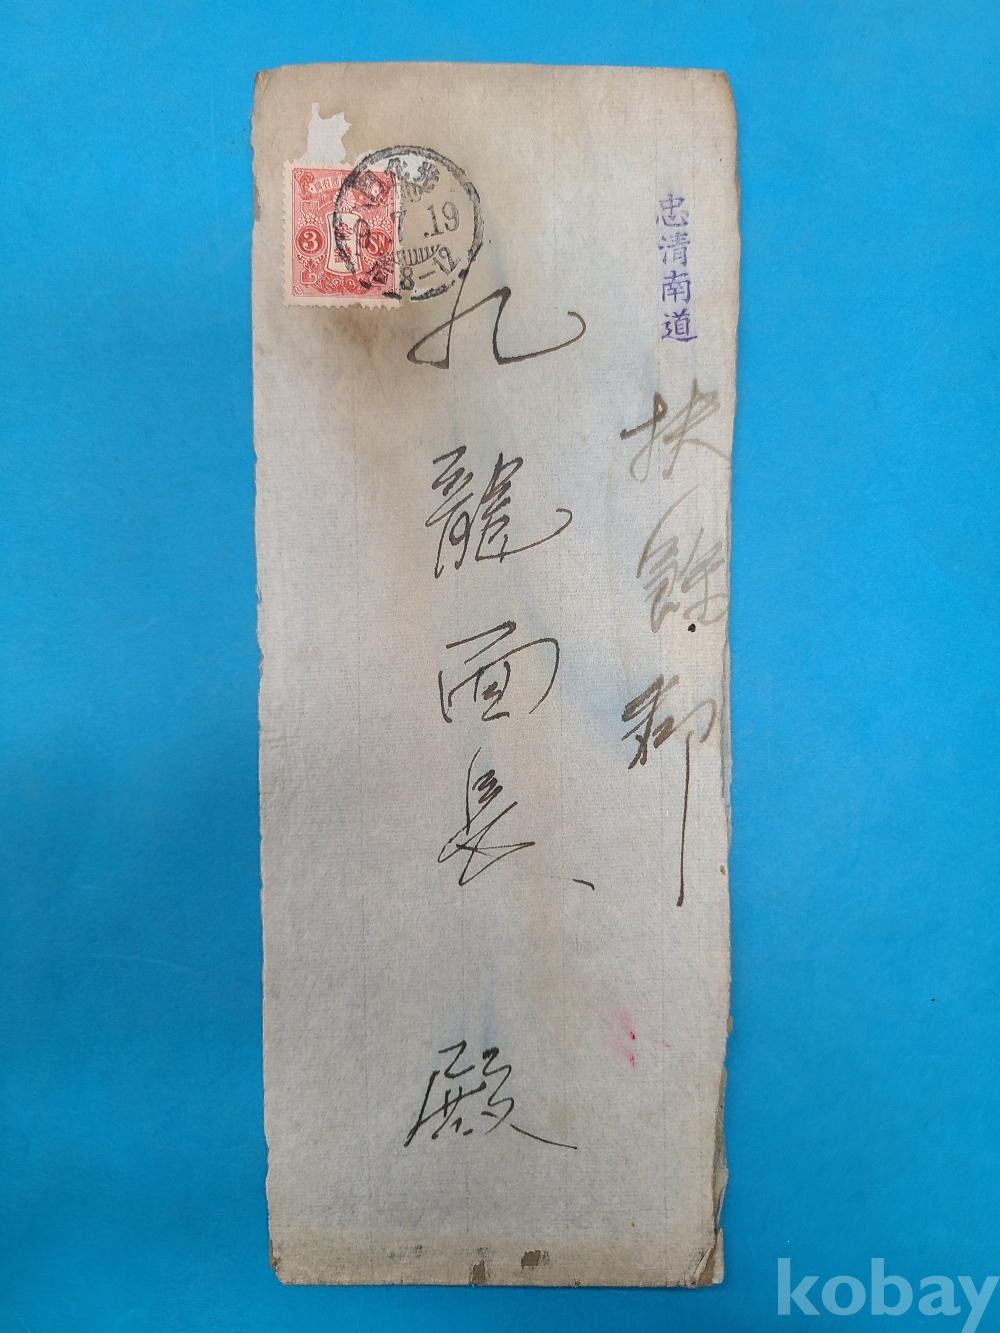 忠清南道
扶餘郡
九龍面長
殿
3
SN
7.19
8-12
kobay